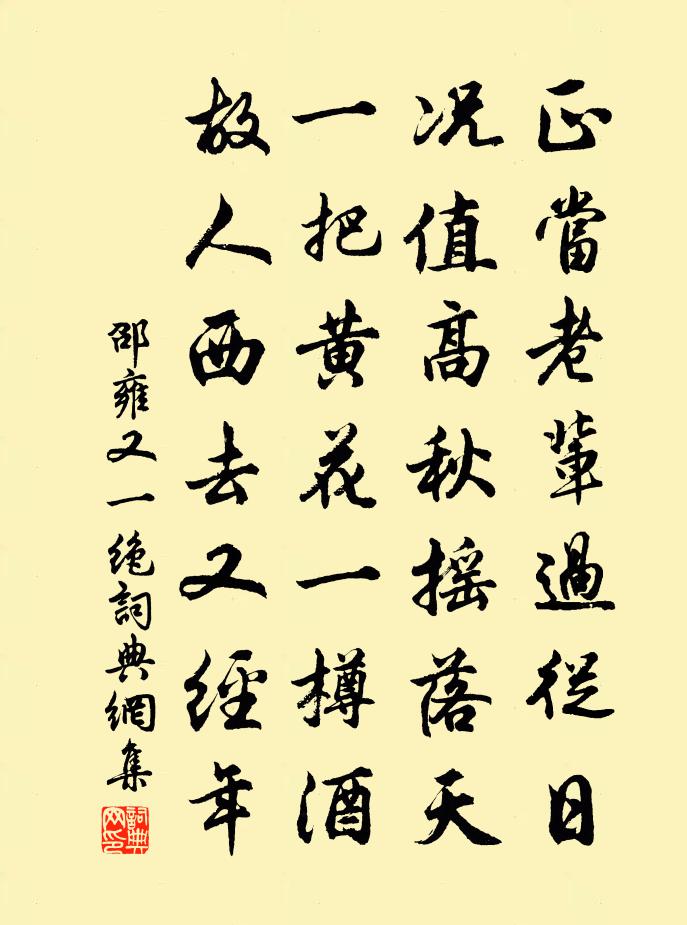 正當老輩過從日
况值高秋摇落天
一把黄花一樽酒
故人西去又經年
邵雍又一绝詞典網集
詞典
网印